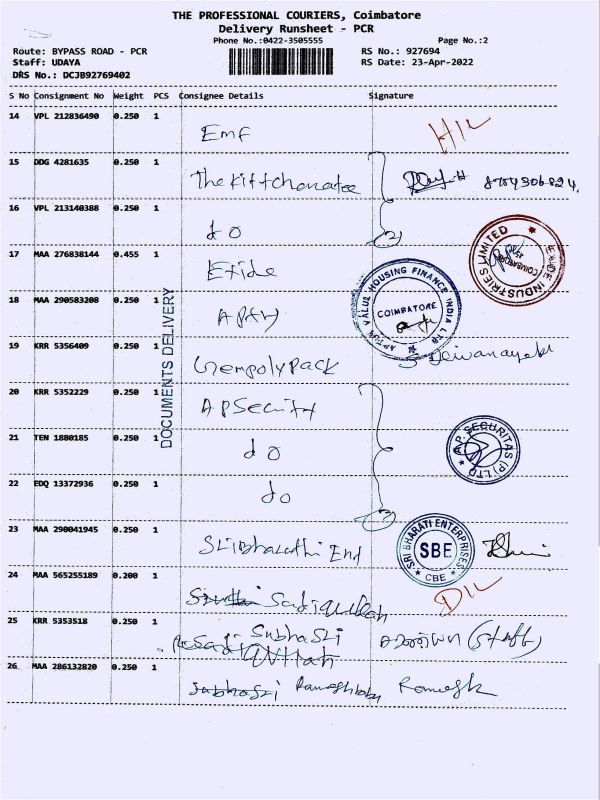 THE PROFESSIONAL COURIERS, Coimbatore
Delivery Runsheet - PCR
Phone No.:0422-3505555 Page No.:2
Route: BYPASS ROAD - PCR RS No.: 927694
Staff: UDAYA RS Date: 23-Apr-2022
DRS No.: DCJB92769402
S No Consignment No Weight PCS Consignee Details Signature
14 VPL 212836490 0.250 1 Emf
15 DDG 4281635 0.250 1 8754306824
16 VPL 213140388 0.250 1 do (2)
17 MAA 276838144 0.455 1 Exide
EXIDE INDUSTRIES LIMITED COIMBATORE
18 MAA 290583208 0.250 1
APTUS VALUE HOUSING FINANCE INDIA LTD COIMBATORE
19 KRR 5356409 0.250 1 Gempolypack
20 KRR 5352229 0.250 1 AP Security
21 TEN 1880185 0.250 1 do
A.P. SECURITAS (P) LTD
22 EDQ 13372936 0.250 1 do
23 MAA 290041945 0.250 1 Sribharathi Ent
SRI BHARATI ENTERPRISES SBE CBE
24 MAA 565255189 0.200 1 Sadiqullah
25 KRR 5353518 0.250 1 Subhasri
26 MAA 286132820 0.250 1 Rameshbabu Ramesh
DOCUMENTS DELIVERY